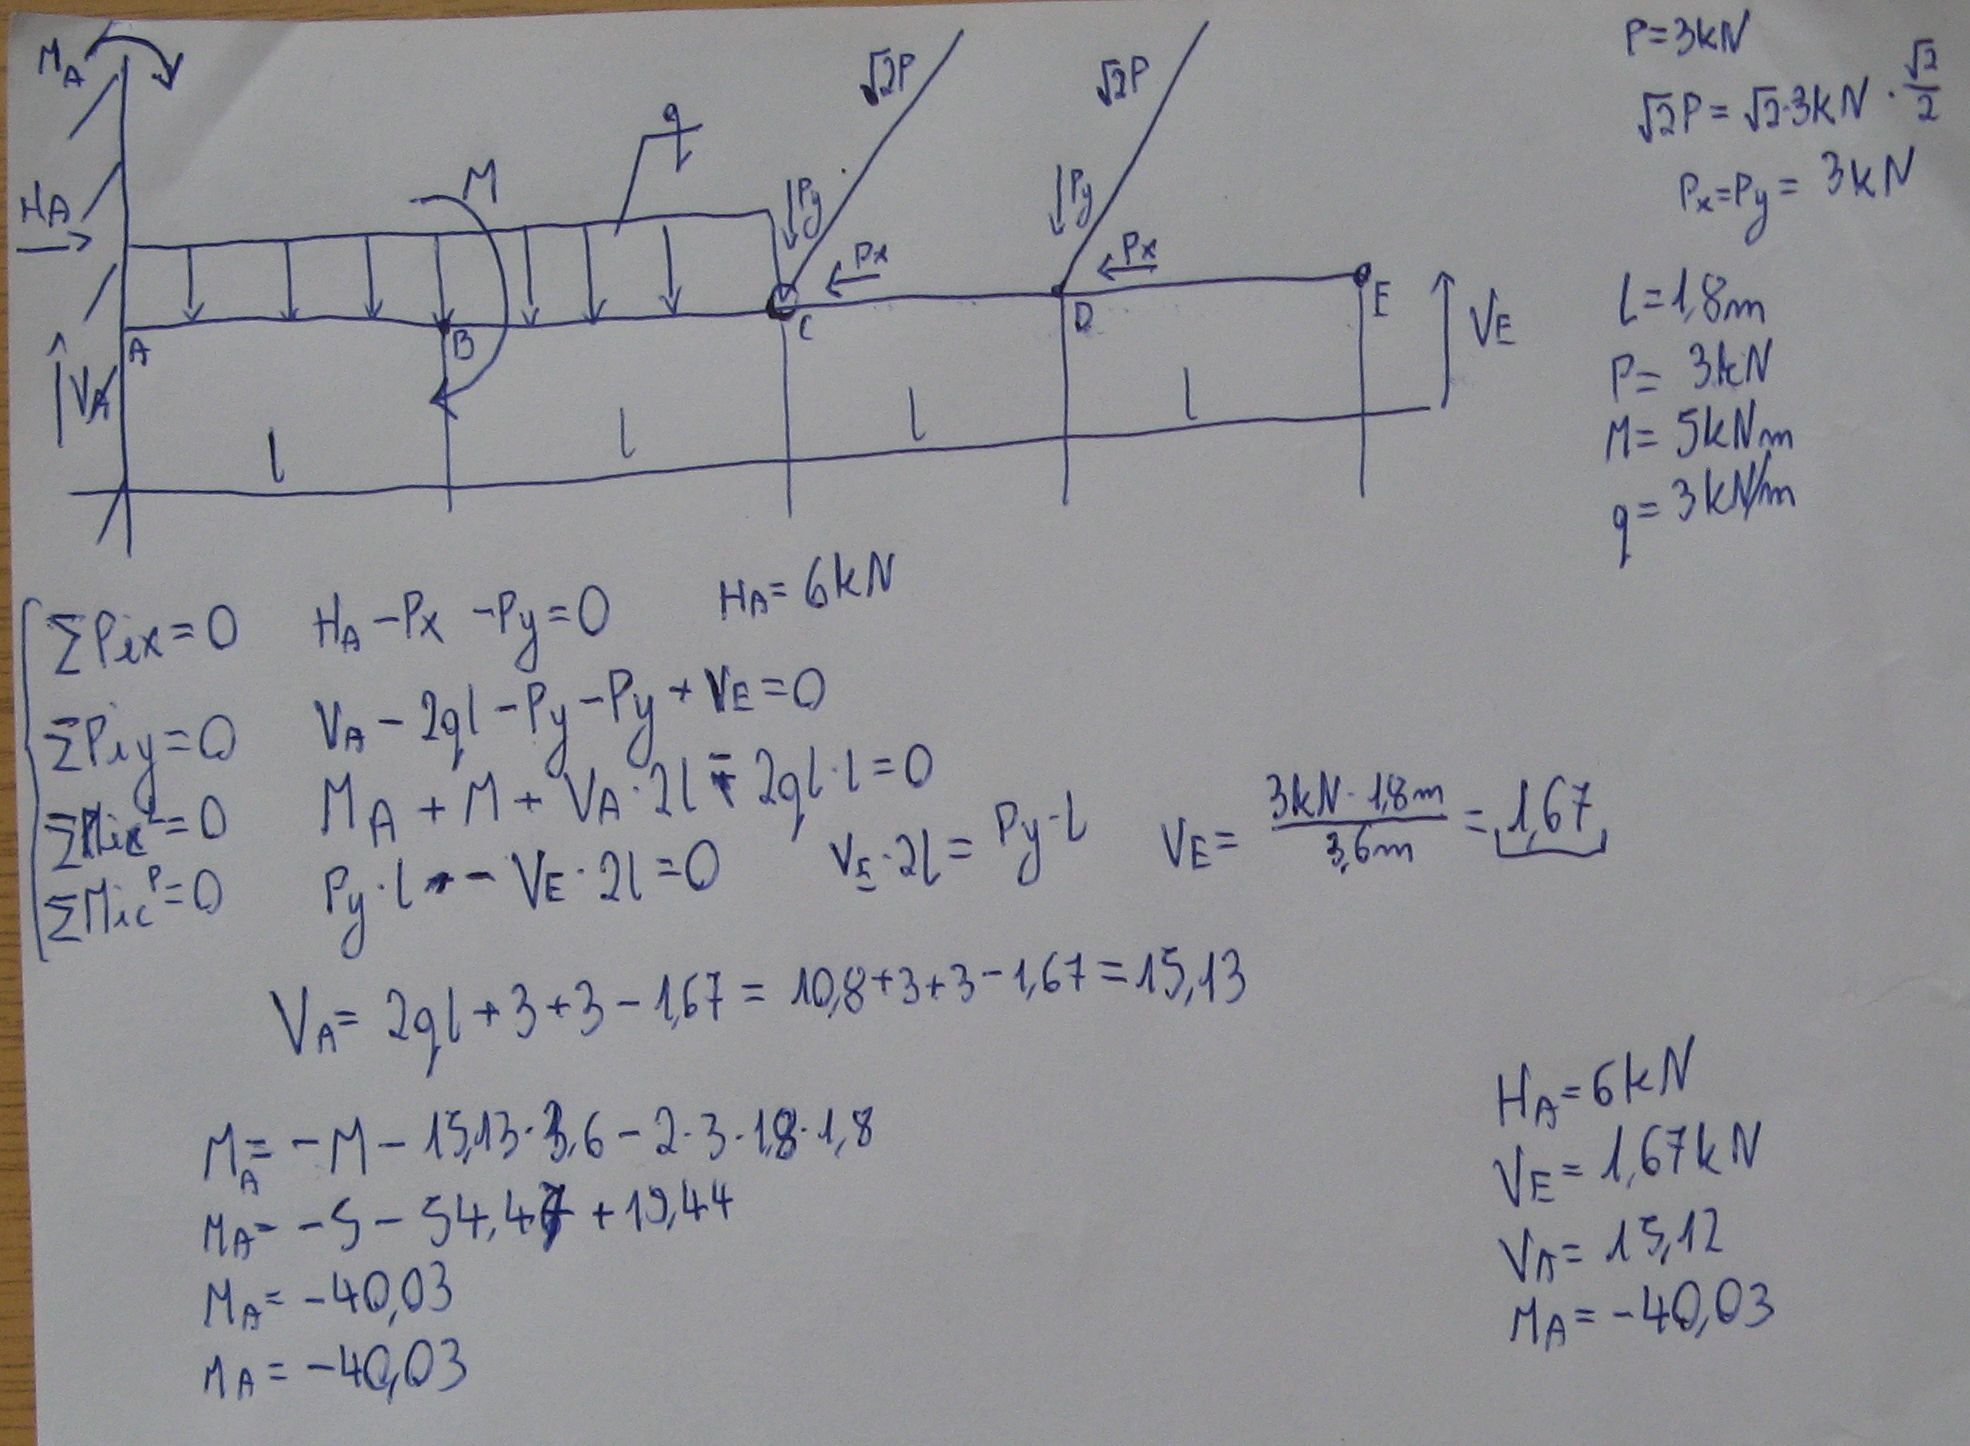 M_A
√2P
√2P
q
M
H_A
Py
Px
Py
Px
A
B
C
D
E
V_A
V_E
l
l
l
l
P=3kN
√2P = √2·3kN · √2/2
Px=Py= 3kN
l=1,8m
P= 3kN
M= 5kNm
q= 3kN/m
ΣPix=0 H_A -Px -Py=0 H_A= 6kN
ΣPiy=0 V_A - 2ql -Py -Py + V_E=0
=0 M_A + M + V_A·2l - 2ql·l=0
ΣMic^P=0 Py·l - V_E·2l=0 V_E·2l= Py·l V_E= 3kN·1,8m/3,6m = 1,67
V_A= 2ql+3+3-1,67= 10,8+3+3-1,67=15,13
M_A= -M - 15,13·3,6 - 2·3·1,8·1,8
M_A= -5 - 54,47 +19,44
M_A= -40,03
M_A= -40,03
H_A=6kN
V_E= 1,67kN
V_A= 15,12
M_A= -40,03